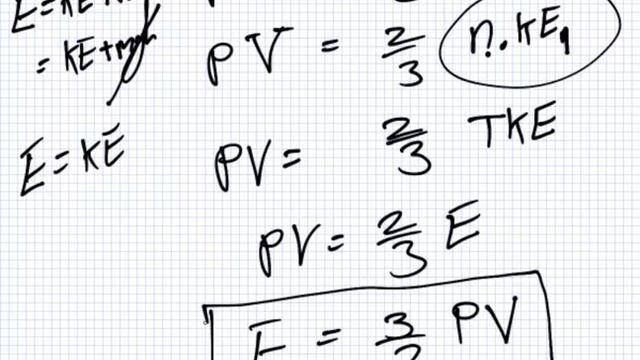 E = KE
PV = 2/3 n.KE₁
= KE + mgh
E = KE
PV = 2/3 TKE
PV = 2/3 E
E = 3/2 PV